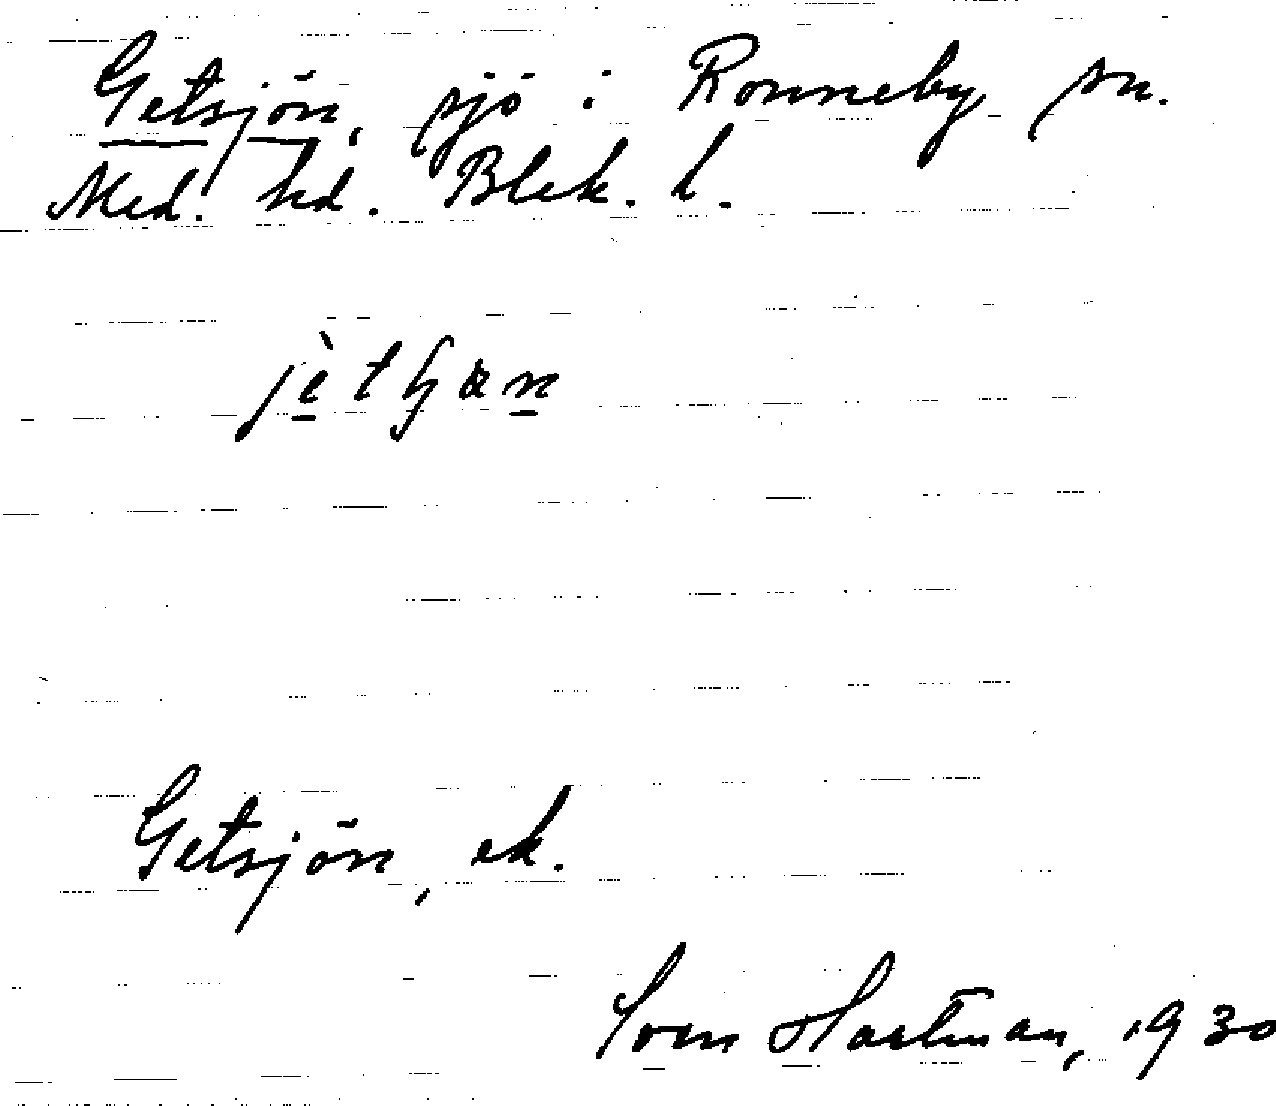 Getsjön, sjö i Ronneby sn.
Med. hd. Blek. l.
Getsjön, ek.
Sven Hartman, 1930